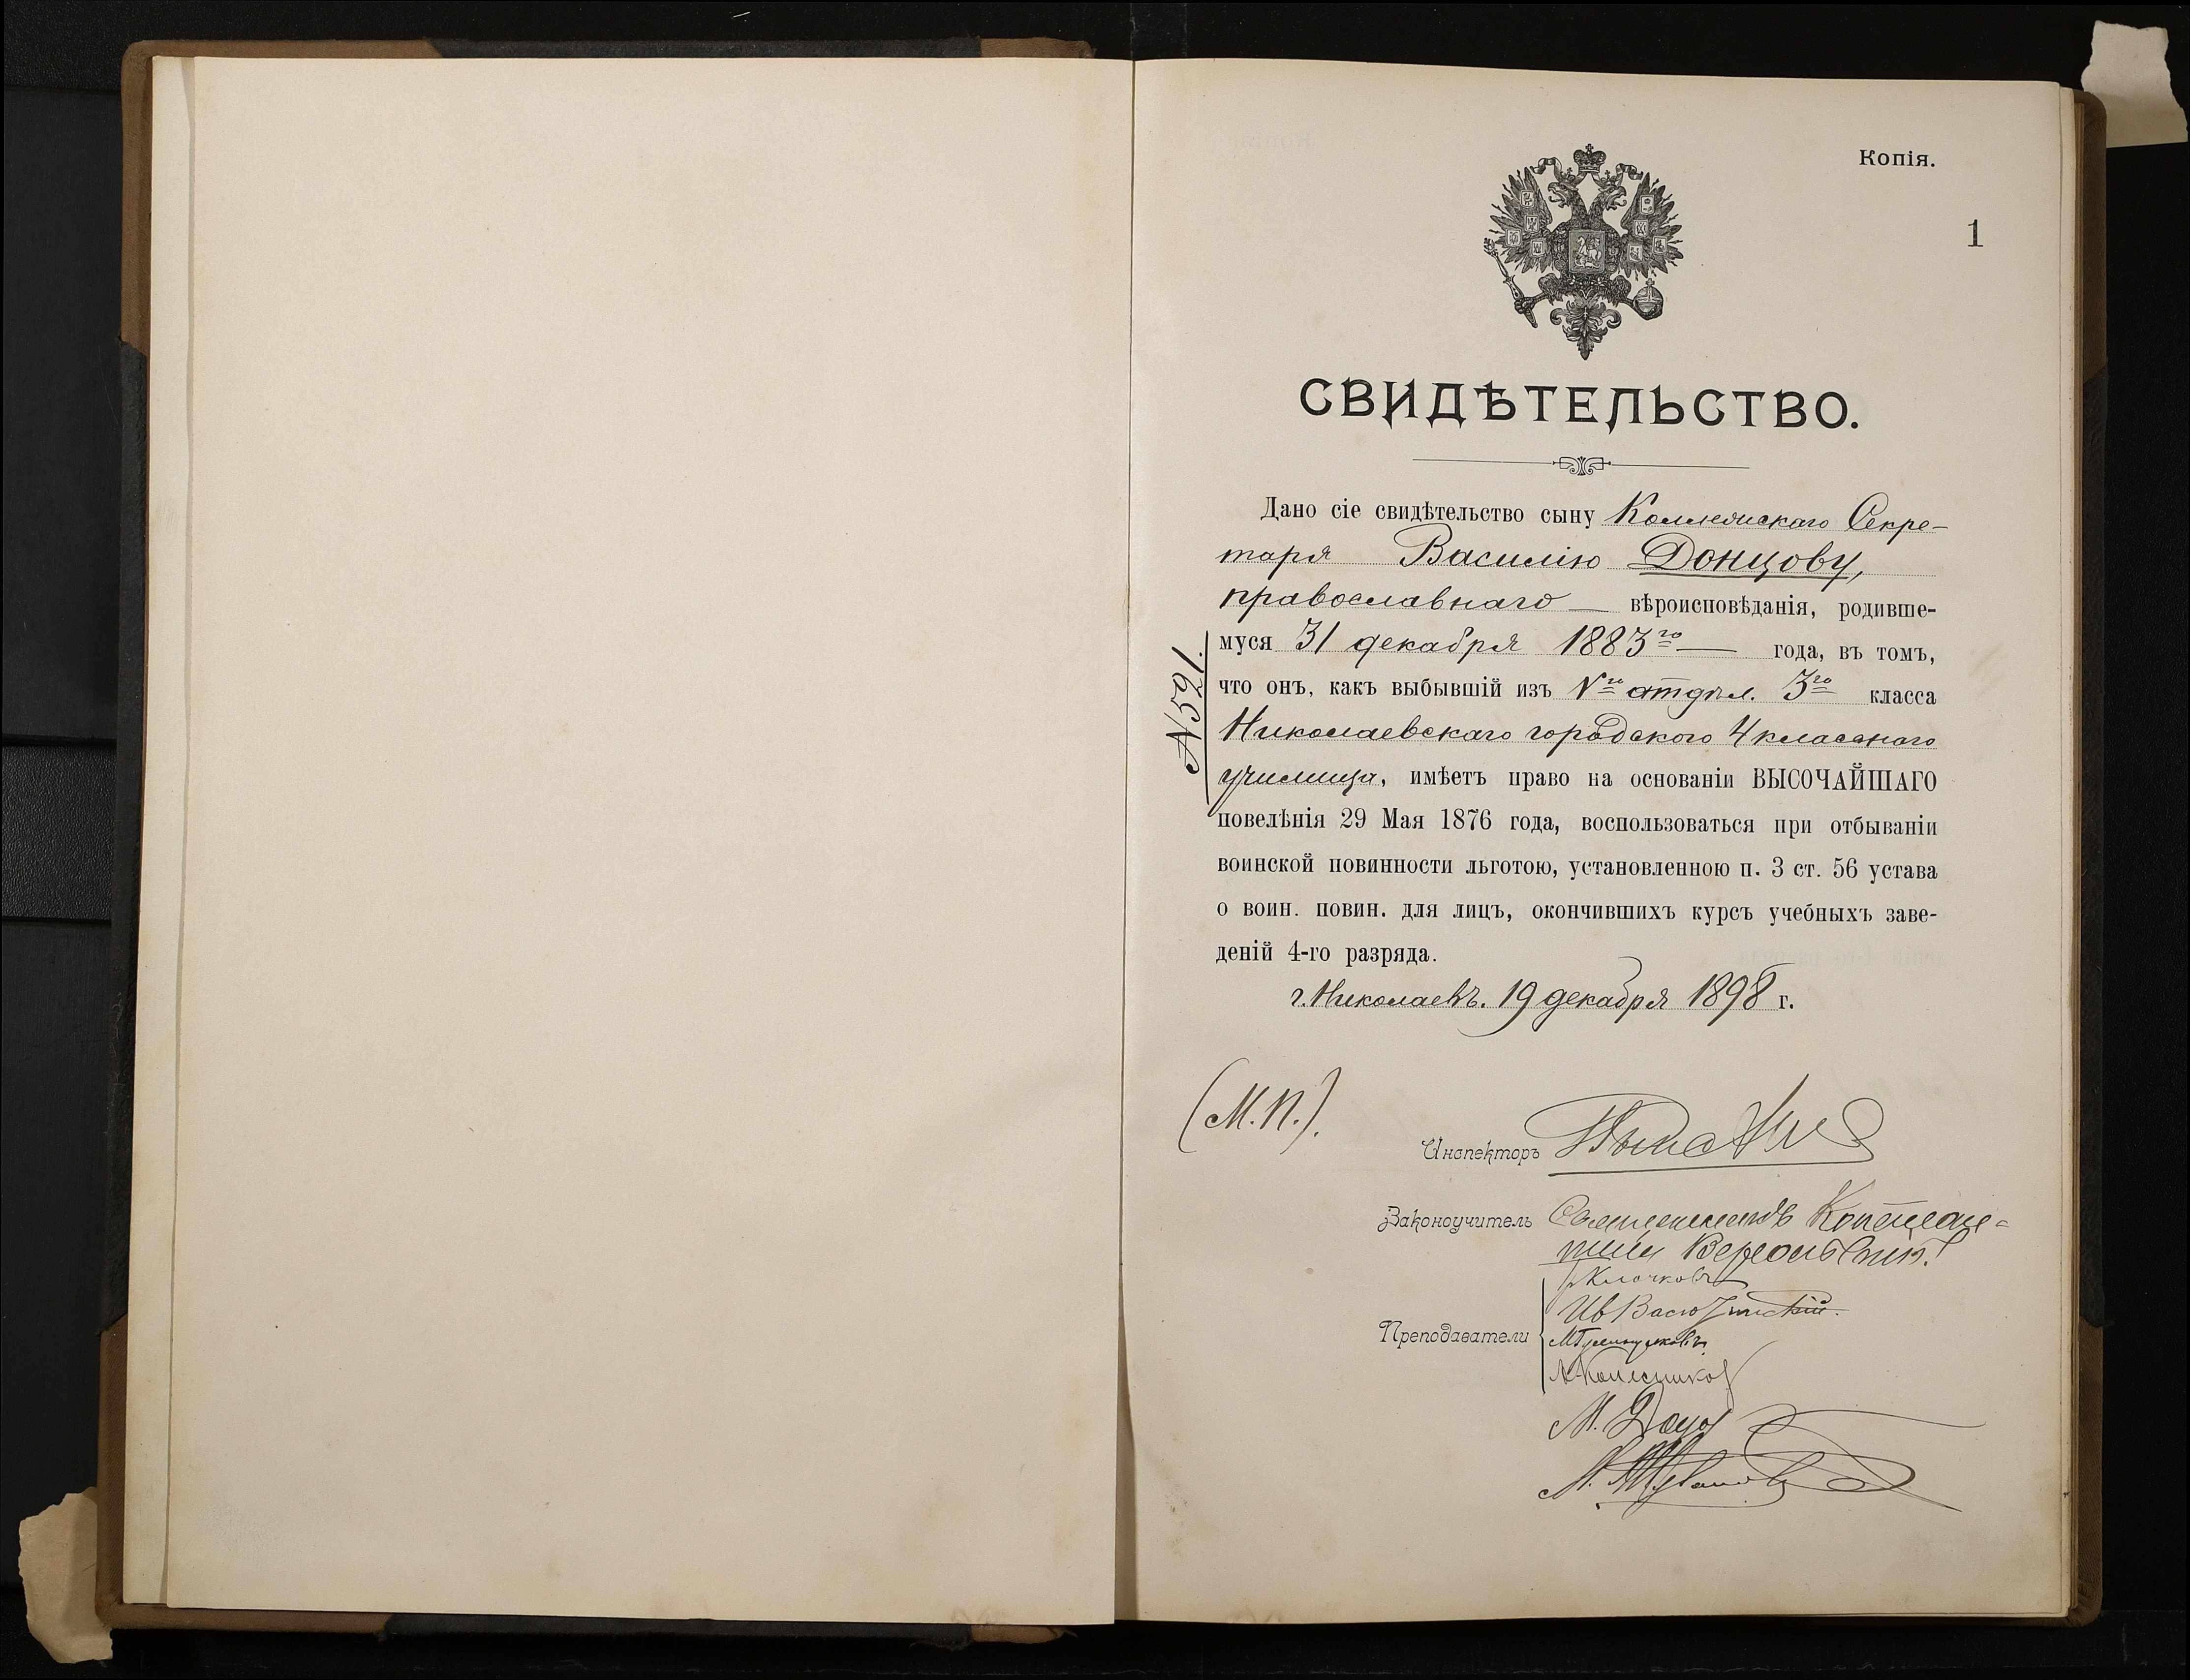 Копія.
1
СВИДѢТЕЛЬСТВО.
Дано сіе свидѣтельство сыну Коллежскаго Секре-
таря Василію Донцову,
православнаго — вѣроисповѣданія, родивше-
муся 31 декабря 1883го — года, въ томъ,
что онъ, какъ выбывшій изъ Vго отдѣл. 3го класса
Николаевскаго городского 4 класснаго
училища, имѣетъ право на основаніи ВЫСОЧАЙШАГО
повелѣнія 29 Мая 1876 года, воспользоваться при отбываніи
воинской повинности льготою, установленною п. 3 ст. 56 устава
о воин. повин. для лицъ, окончившихъ курсъ учебныхъ заве-
деній 4-го разряда.
г. Николаевъ. 19 декабря 1898 г.
№521.
(М.П.).
Инспекторъ
Законоучитель Священникъ
Клочковъ
Преподаватели
Колесников
М.